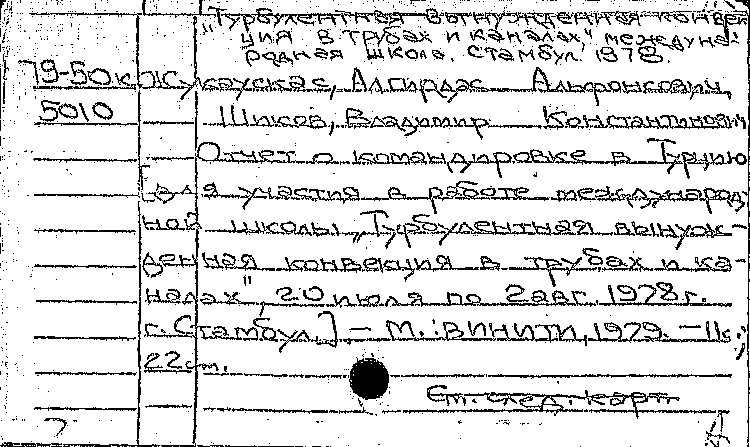 „Турбулентная вынужденная конвек
ция в трубах и каналах", междуна-
родная школа. Стамбул. 1978.
79-50к Жукаускас, Алгирдас Альфонсович,
5010 Шиков, Владимир Константинович
Отчет о командировке в Турцию
[для участия в работе международ
ной школы „Турбулентная вынуж-
денная конвекция в трубах и ка-
налах", 20 июля по 2 авг. 1978 г.
г. Стамбул.] – М.: ВИНИТИ, 1979. – 11с.;
22см.
См. след. карт